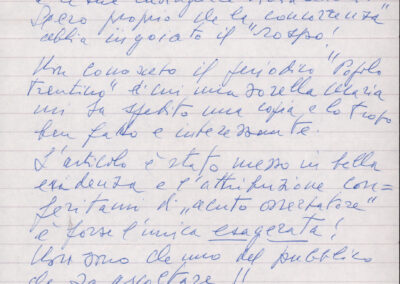 Spero proprio che la concorrenza"
abbia ingoiato il "rospo!
Non conoscevo il periodico "Popolo
trentino" di cui mia sorella Maria
mi ha spedito una copia e lo trovo
ben fatto e interessante.
L'articolo è stato messo in bella
evidenza e l'attribuzione con=
feritami di "acuto osservatore"
è forse l'unica esagerata!
Non sono che uno del pubblico
che sa ascoltare!!